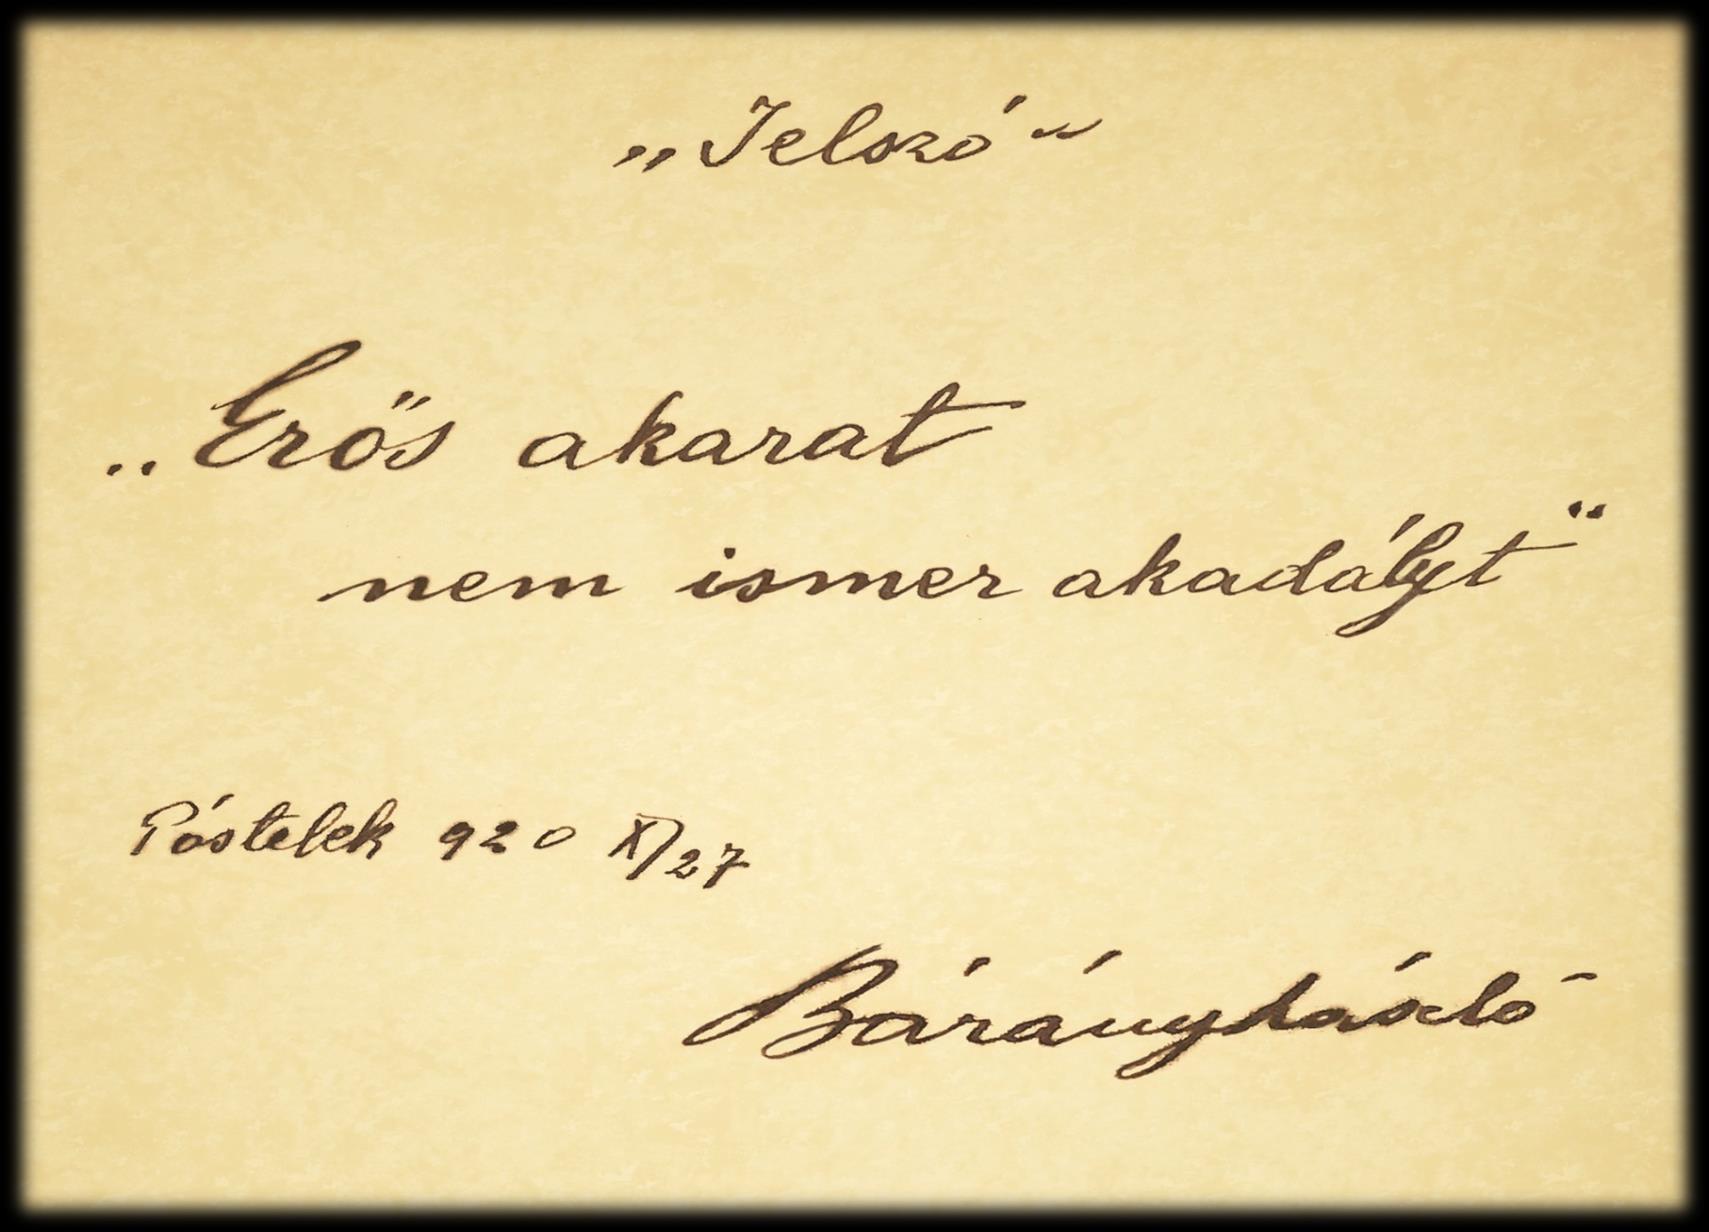 „Jelszó“
„Erős akarat
nem ismer akadályt“
Póstelek 920 X/27
Bárány László